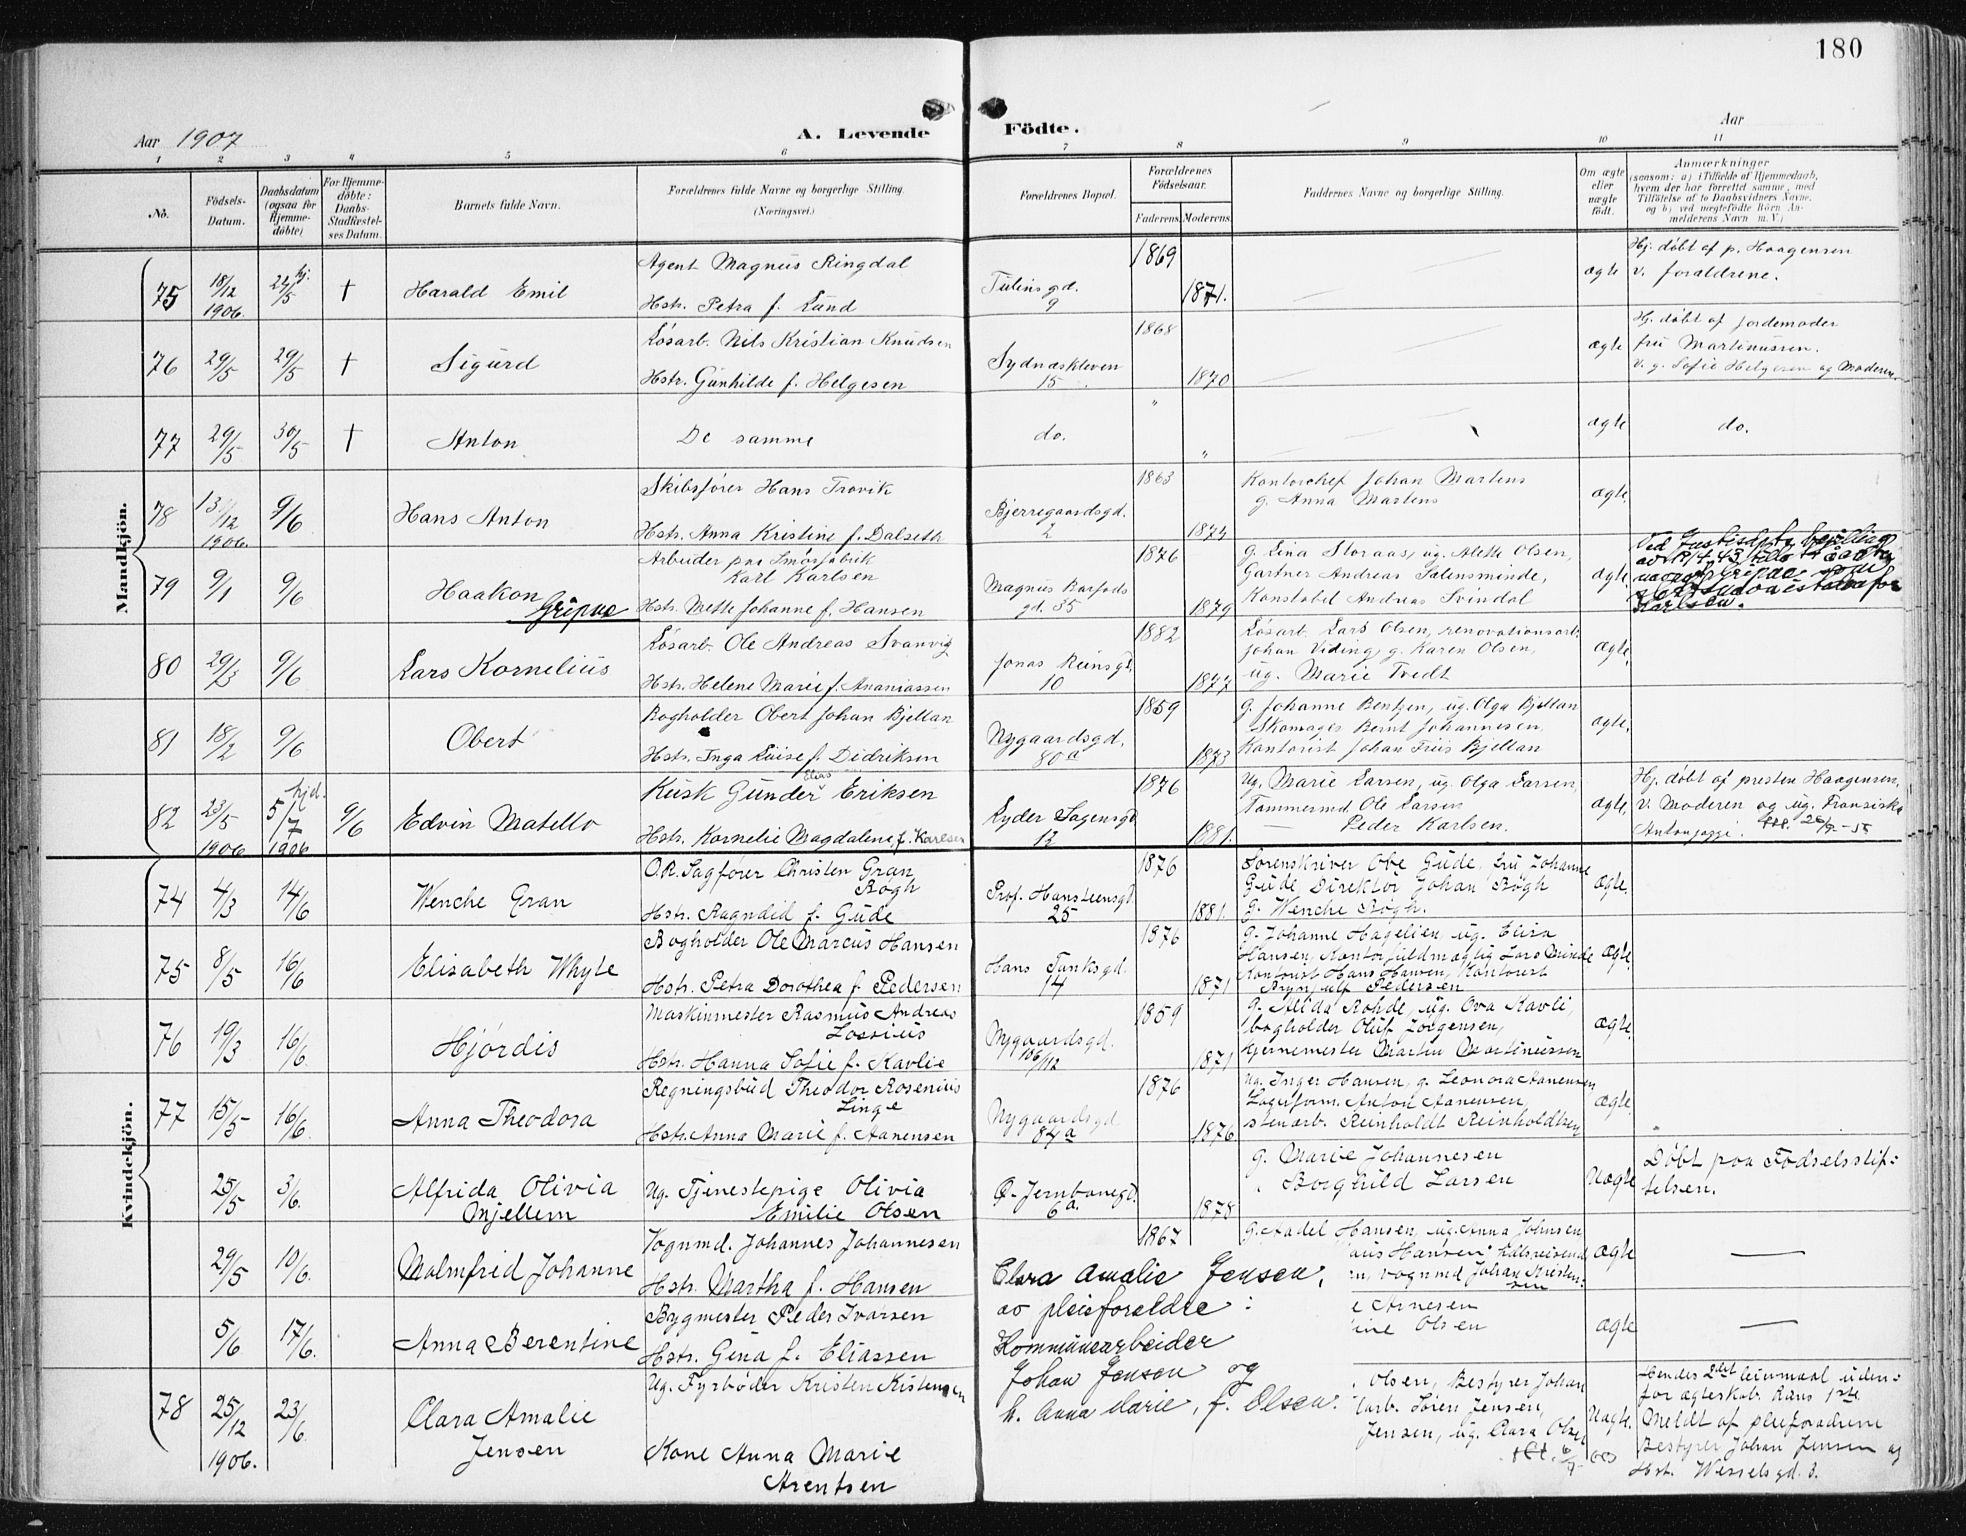 180
Aar 1907
A. Levende Födte.
Aar
1 2 3 4 5 6 7 8 9 10 11
No.
Födsels-Datum.
Daabsdatum (ogsaa for Hjemme-döbte)
For Hjemme-döbte: Daabs-Stadfæstel-ses Datum.
Barnets fulde Navn.
Forældrenes fulde Navne og borgerlige Stilling. (Næringsvei.)
Forældrenes Bopæl.
Forældrenes Födselsaar.
Faderens. Moderens.
Faddernes Navne og borgerlige Stilling.
Om ægte eller uægte födt.
Anmærkninger
(saasom: a) i Tilfælde af Hjemmedaab, hvem der har forrettet samme, med Tilföielse af to Daabsvidners Navne, og b) ved uægtefödte Börn An-melderens Navn m. V.)
Mandkjön.
75 18/12 1906 24/5 hj. † Harald Emil
Agent Magnus Ringdal
Hstr. Petra f. Lund
Tulinsgd. 9
1869 1871.
ægte
Hj. døbt af p. Haagensen
v. forældrene.
76 29/5 29/5 † Sigurd
Løsarb. Nils Kristian Knudsen
Hstr. Gunhilde f. Helgesen
Sydnæskleven 15
1868 1870
ægte
Hj. døbt af jordemoder
fru Martinussen.
v. g. Sofie Helgesen og Moderen.
77 29/5 30/5 † Anton
De samme
do.
" "
ægte
do.
78 13/12 1906. 9/6 Hans Anton
Skibsfører Hans Trovik
Hstr. Anna Kristine f. Dalseth
Bjerregaardsgd. 2
1863 1874
Kontorchef Johan Martens
g. Anna Martens
ægte.
79 9/1 9/6 Haakon Gripne
Arbeider paa Smørfabrik
Karl Karlsen
Hstr. Mette Johanne f. Hansen
Magnus Barfods gd. 35
1876 1879
g. Lina Storaas, ug. Alette Olsen,
Gartner Andreas Salensminde,
Konstabel Andreas Svindal
ægte
Ved Justisdepts bevilling
Karlsen.
80 29/3 9/6 Lars Kornelius
Løsarb. Ole Andreas Svanvig
Hstr. Helene Marie f. Ananiassen
Jonas Reinsgd. 10
1882 1877
Løsarb. Lars Olsen, renovationsarb.
Johan Viding, g. Karen Olsen,
ug. Marie Tvedt
ægte.
81 18/2 9/6 Obert
Bogholder Obert Johan Bjellan
Hstr. Inga Luise f. Didriksen
Nygaardsgd. 80a
1859 1873
g. Johanne Bentzen, ug. Olga Bjellan
Skomager Bernt Johannesen,
Kontorist Johan Friis Bjellan
ægte.
82 23/5 1906 hjd. 5/7 1906 9/6 Edvin Matello
Kusk Gunder Elias Eriksen
Hstr. Kornelie Magdalene f. Karlsen
Lyder Sagensgd. 12
1876 1881.
Ug. Marie Larsen, ug. Olga Larsen,
Tømmermd. Ole Larsen
— Peder Karlsen.
ægte.
Hj. døbt af presten Haagensen,
v. Moderen og ug. Fransiska
Kvindekjön.
74 4/3 14/6 Wenche Gran
O.R. Sagfører Christen Gran
Bøgh
Hstr. Ragndid f. Gude
Prof. Hansteensgd. 25
1876 1881.
Sorenskriver Ove Gude, fru Johanne
Gude, Direktør Johan Bøgh
g. Wenche Bøgh.
ægte.
75 8/5 16/6 Elisabeth Whyte
Bogholder Ole Marcus Hansen
Hstr. Petra Dorothea f. Pedersen
Hans Tanksgd. 14
1876 1871
g. Johanne Hagelien, ug. Elisa
Hansen, Kontorfuldmægtig Lars Minde
Kontorist Hans Hansen, Kontorist
Brynjulf Pedersen
Ægte.
76 19/3 16/6 Hjørdis
Maskinmester Rasmus Andreas
Lossius
Hstr. Hanna Sofie f. Kavlie
Nygaardsgd. 106/112
1859 1871
g. Alida Rohde, ug. Ova Kavli,
bogholder Oluf Jørgensen,
Kjernemester Martin Martinussen
ægte.
77 15/5 16/6 Anna Theodora
Regningsbud Theodor Rosenius
Linge
Hstr. Anna Marie f. Aanensen
Nygaardsgd. 84a
1876 1876
ug. Inger Hansen, g. Leonora Aanensen
Lagerform. Anton Aanensen,
stenarb. Reinholdt Reinholdtsen
ægte.
25/5 3/6. Alfrida Olivia
Mjellem
Ug. Tjenestepige Olivia
Emilie Olsen
Ø. Jernbanegd. 6a.
1878
g. Marie Johannesen
" Borghild Larsen
Uægte
Døbt paa Fødselsstif-
telsen.
29/5 10/6. Malmfrid Johanne
Vognmd. Johannes Johannesen
Hstr. Martha f. Hansen
1867
g. Aadel Hansen, ug. Anna Johnsen,
aus Hansen, halsreisend
n, vognmd Johan Kristen-
sen
ægte
—
5/6 17/6. Anna Berentine
Bygmester Peder Ivarsen
Hstr. Gina f. Eliassen
e Arnesen
ine Olsen
ægte
—
78 25/12 1906. 23/6. Clara Amalie
Jensen
Ug. Fyrbøder Kristen Kistensen
Kone Anna Marie
Arentsen
Clara Amalie Jensen,
av pleieforeldre:
Kommunearbeider
Johan Jensen og
h. Anna Marie, f. Olsen.
Olsen, Bestyrer Johan
arb. Søren Jensen,
Jensen, ug. Clara Olsen
Uægte.
Hendes 2det leiermaal uden-
for ægteskab. Hans 1ste
Meldt af pleieforældrene
Bestyrer Johan Jensen og
Hst. Wesselsgd. 3.